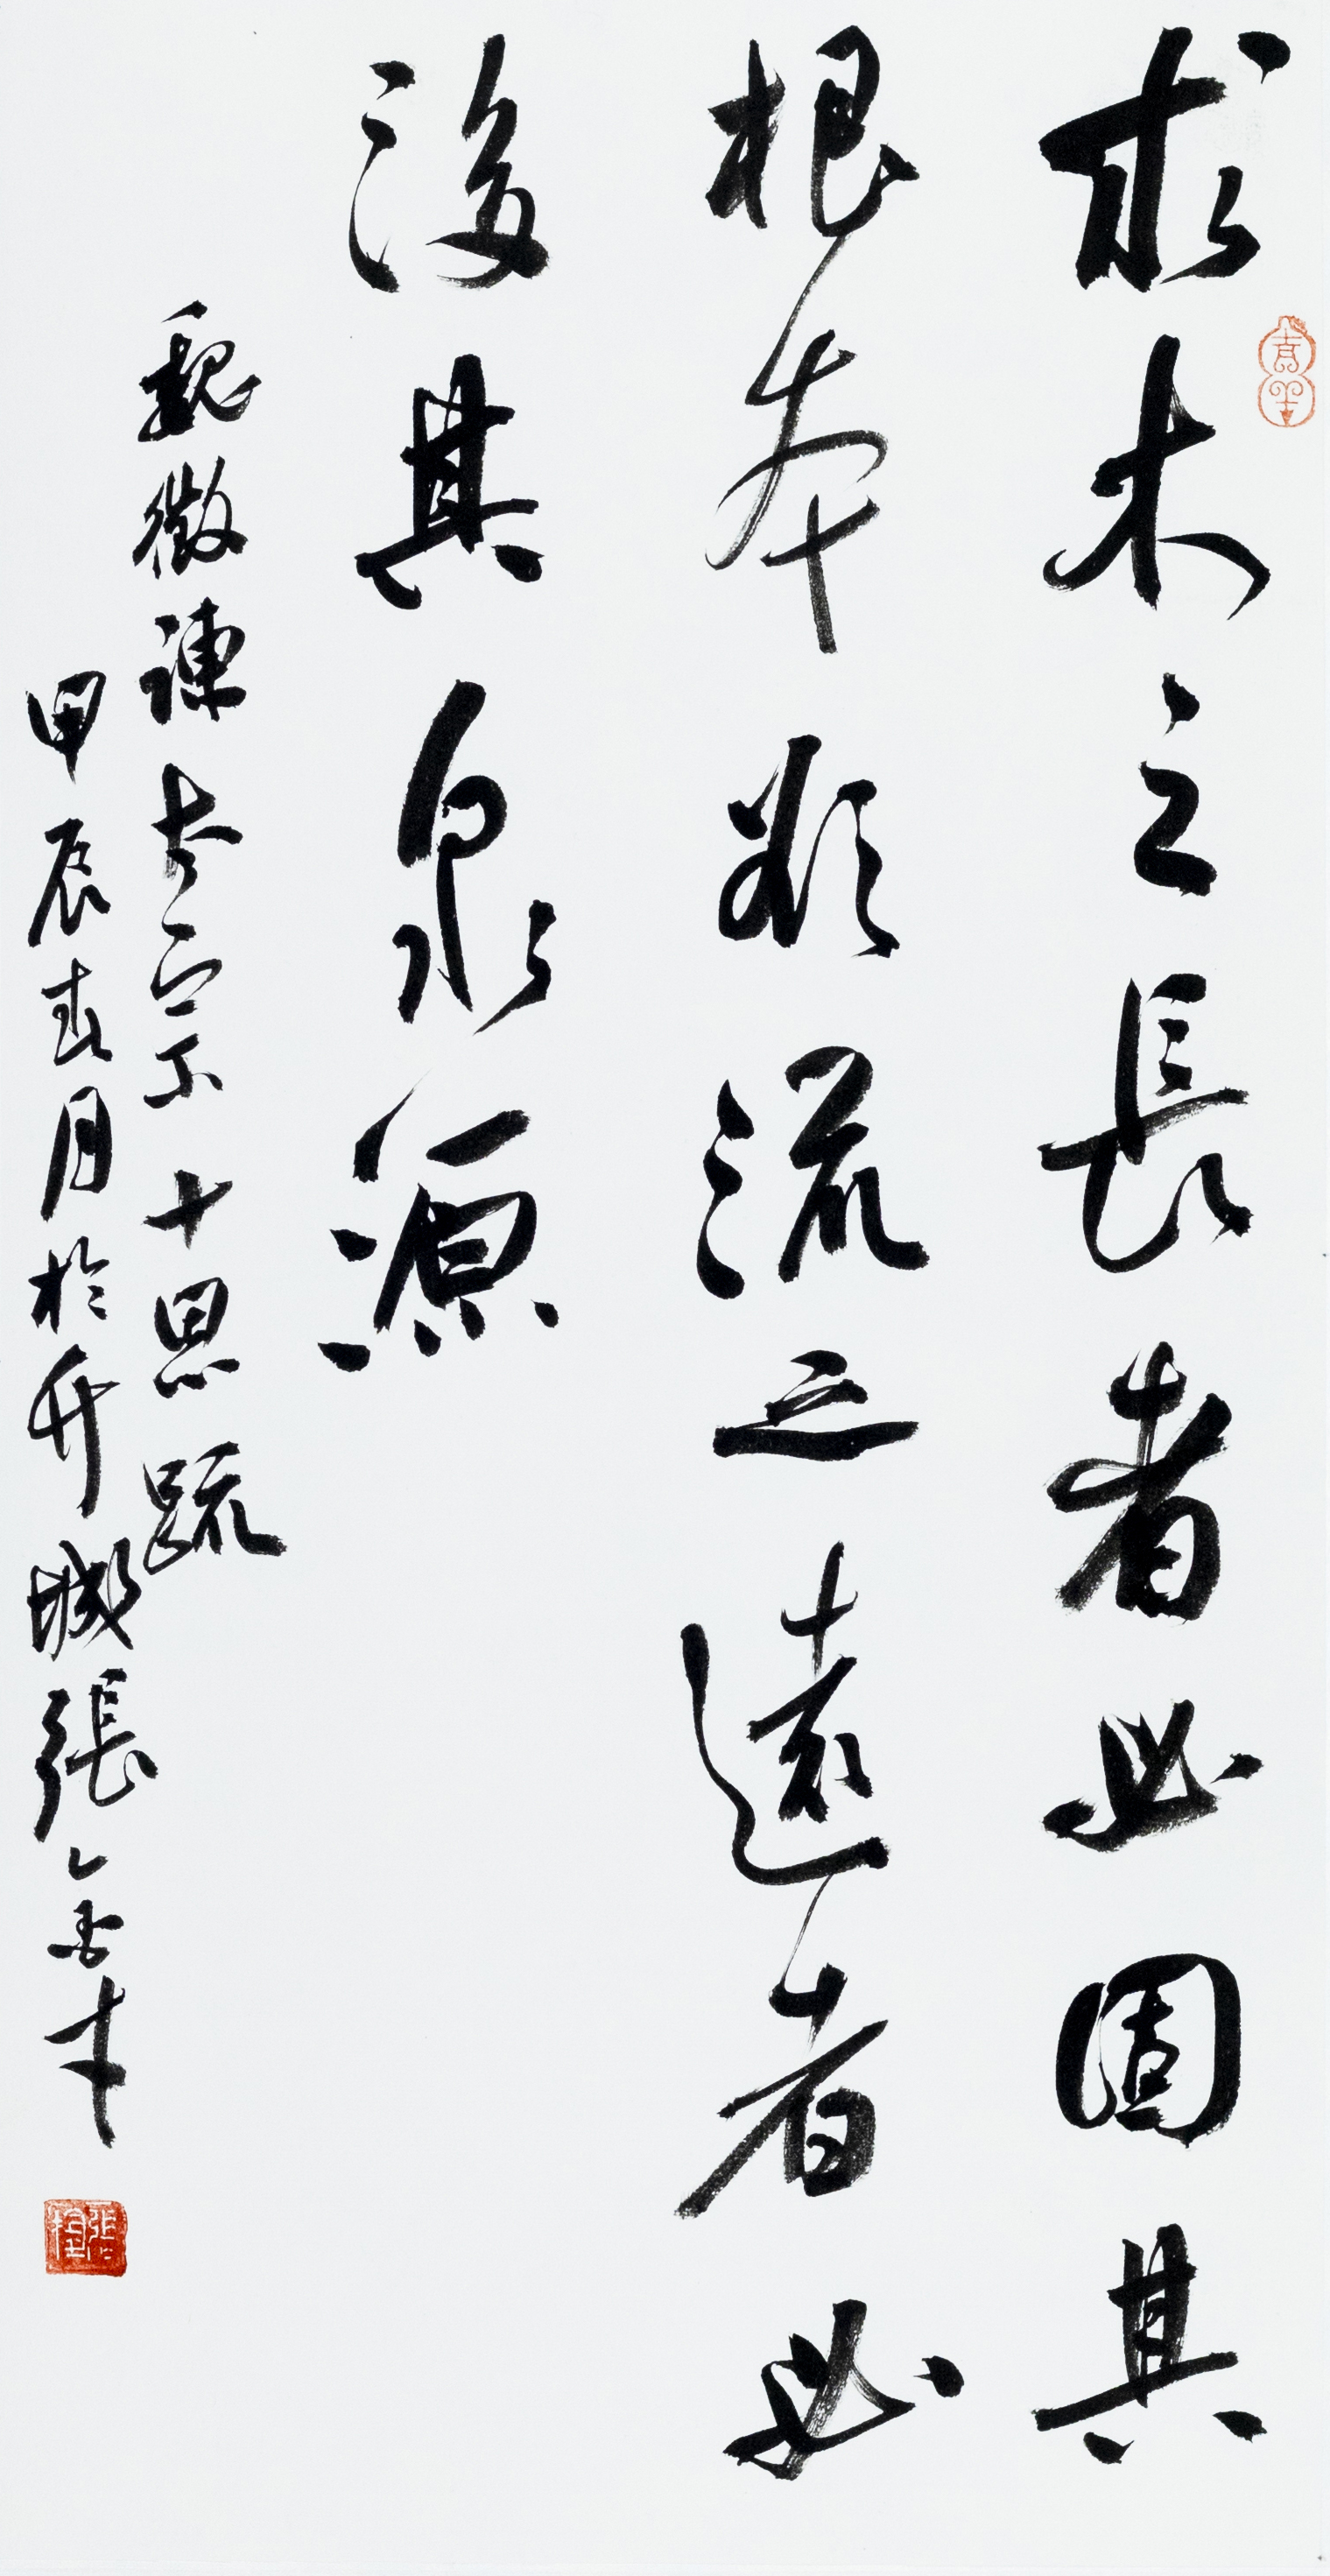 求木之長者必固其
根本欲流之遠者必
浚其泉源
魏徵諫太宗十思疏
甲辰春月於升城張